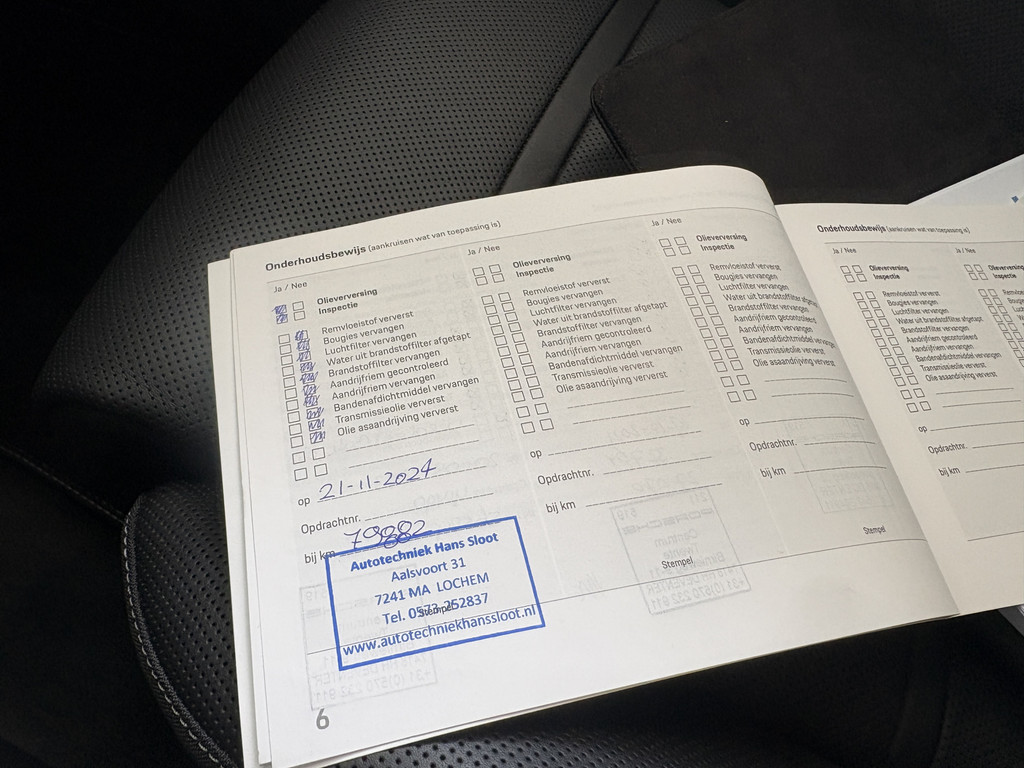 Onderhoudsbewijs (aankruisen wat van toepassing is)
Ja / Nee
Olieverversing
Inspectie
Remvloeistof ververst
Bougies vervangen
Luchtfilter vervangen
Water uit brandstoffilter afgetapt
Brandstoffilter vervangen
Aandrijfriem gecontroleerd
Aandrijfriem vervangen
Bandenafdichtmiddel vervangen
Transmissieolie ververst
Olie asaandrijving ververst
op 21-11-2024
Opdrachtnr.
bij km 79882
Autotechniek Hans Sloot
Aalsvoort 31
7241 MA LOCHEM
Tel. 0573-252837
Stempel
www.autotechniekhanssloot.nl
6
Ja / Nee
Olieverversing
Inspectie
Remvloeistof ververst
Bougies vervangen
Luchtfilter vervangen
Water uit brandstoffilter afgetapt
Brandstoffilter vervangen
Aandrijfriem gecontroleerd
Aandrijfriem vervangen
Bandenafdichtmiddel vervangen
Transmissieolie ververst
Olie asaandrijving ververst
op
Opdrachtnr.
bij km
Stempel
Ja / Nee
Olieverversing
Inspectie
Remvloeistof ververst
Bougies vervangen
Luchtfilter vervangen
Water uit brandstoffilter
Brandstoffilter vervangen
Aandrijfriem gecontroleerd
Aandrijfriem vervangen
Bandenafdichtmiddel
Transmissieolie ververst
Olie asaandrijving
op
Opdrachtnr.
bij km
Stempel
Onderhoudsbewijs (aankruisen wat van toepassing is)
Ja / Nee
Olieverversing
Inspectie
Remvloeistof ververst
Bougies vervangen
Luchtfilter vervangen
Water uit brandstoffilter afgetapt
Brandstoffilter vervangen
Aandrijfriem gecontroleerd
Aandrijfriem vervangen
Bandenafdichtmiddel vervangen
Transmissieolie ververst
Olie asaandrijving ververst
op
Opdrachtnr.
bij km
Ja / Nee
Inspectie